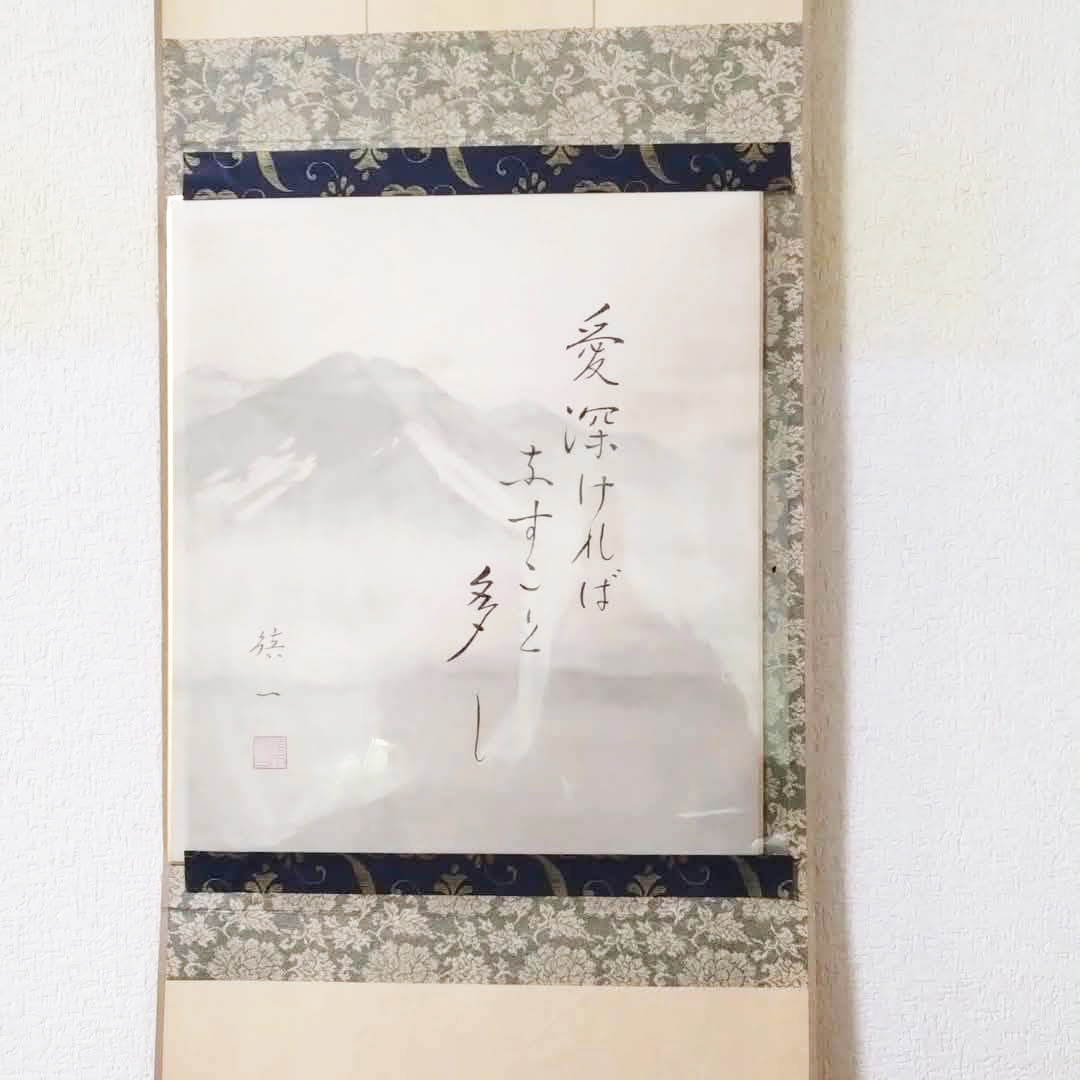 愛深ければ
なすこと
多し
一